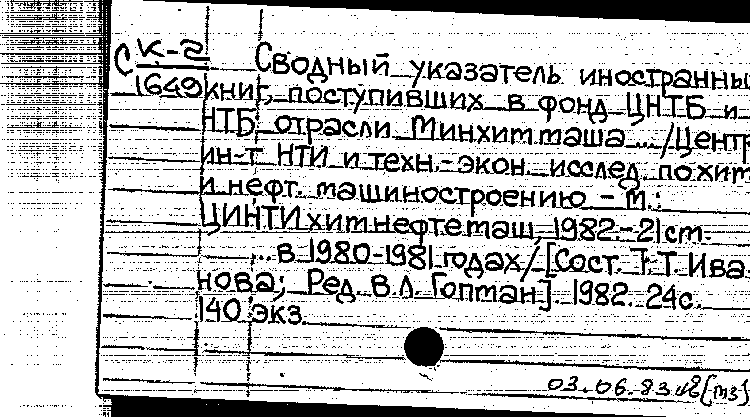 С К-2 Сводный указатель иностранны
1649 книг, поступивших в фонд ЦНТБ и
НТБ отрасли Минхиммаша .../Центр.
ин-т НТИ и техн.-экон. исслед. по хим.
и нефт. машиностроению. – М.:
ЦИНТИхимнефтемаш, 1982.- 21 cm.
... в 1980-1981 годах/ [Сост. Т.Т. Ива-
нова; Ред. В.Л. Гоптман]. 1982. 24с.
140 экз.
03.06.83